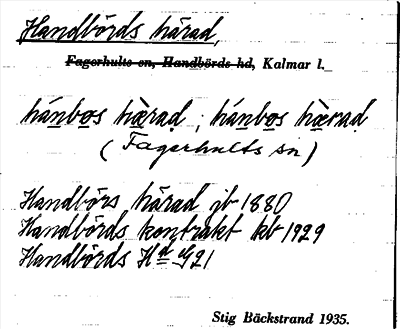 Handbörds härad,
Fagerhults sn, Handbörds hd, Kalmar l.
hánbos hæ̀rad ; hánbos hæ̀rad
(Fagerhults sn)
Handbörs härad jb 1880
Handbörds kontrakt kb 1929
Handbörds Hd
Stig Bäckstrand 1935.